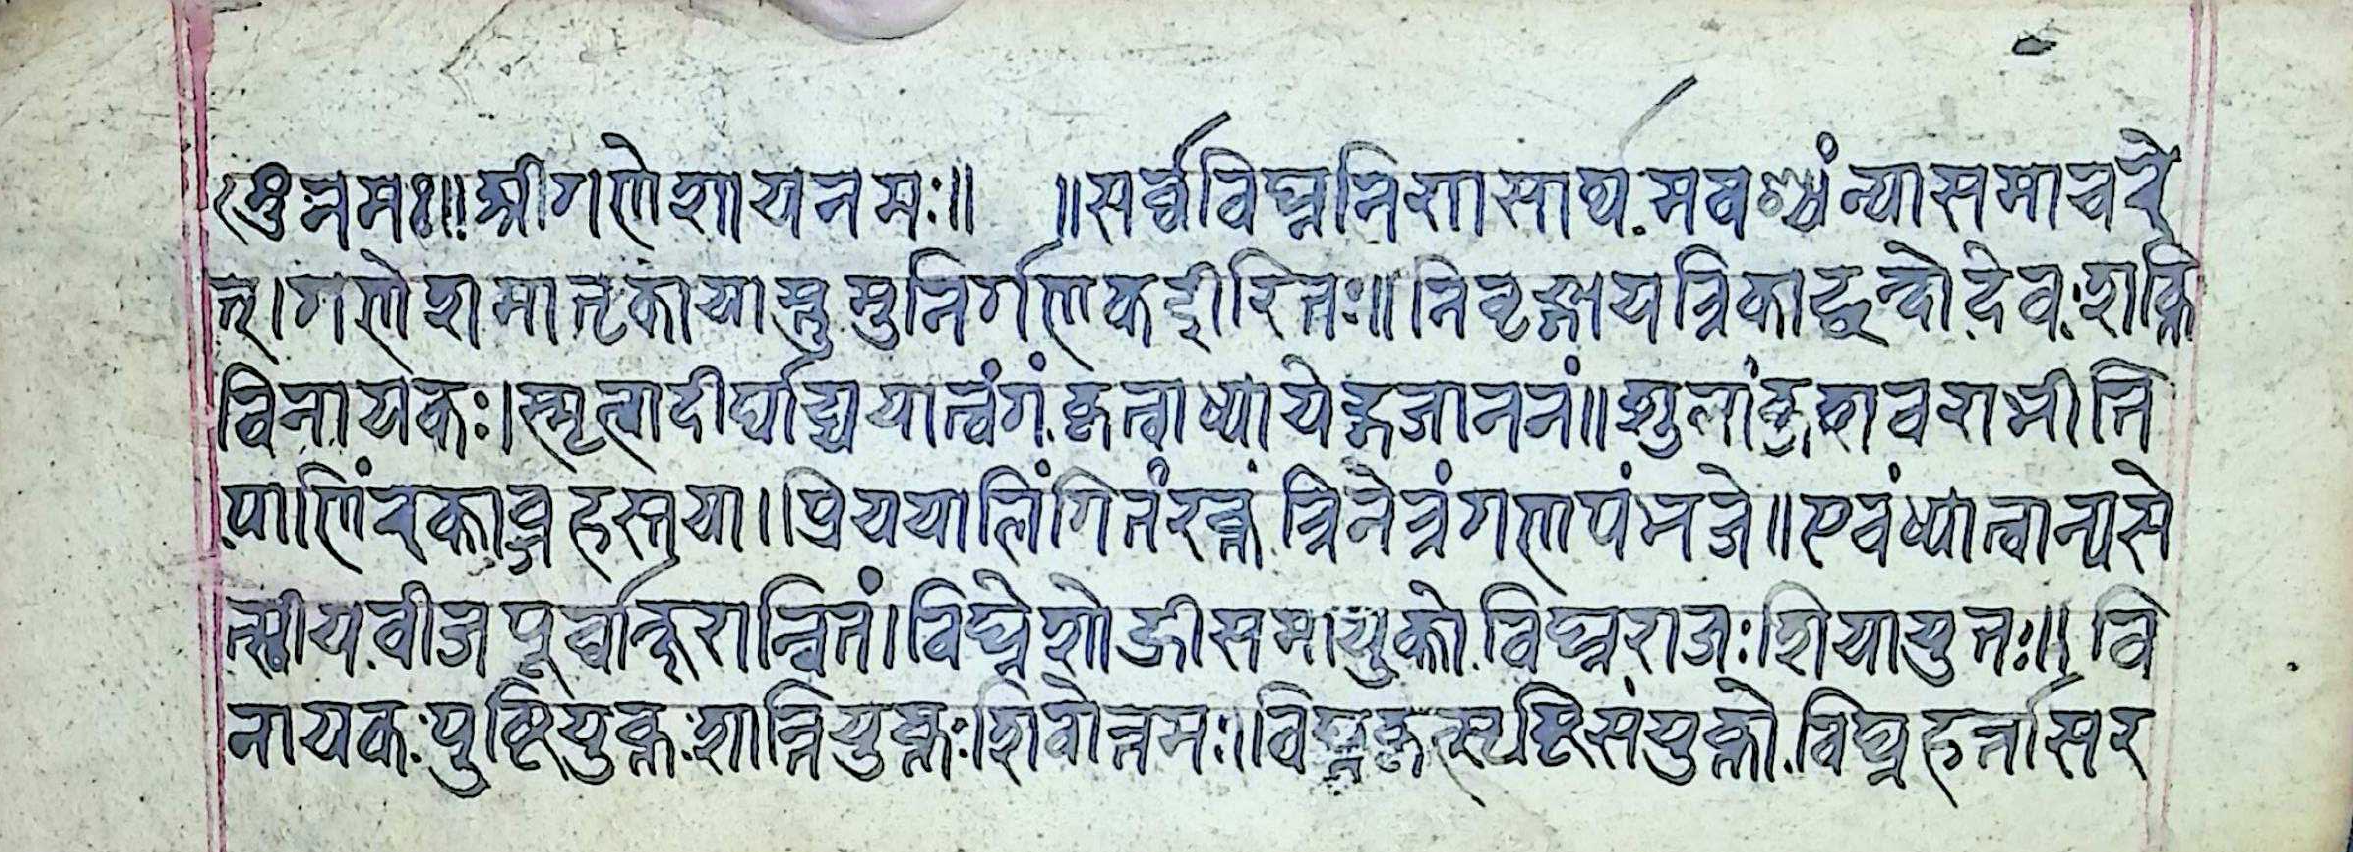 ॐ नमः॥ श्रीगणेशाय नमः॥ ॥सर्व्वविघ्ननिरासार्थमवश्यंन्याससमाचरे
त्।गणेशमातृकायास्तुमुनिर्गणकईरितः॥निवृद्गायत्रिकाछन्दोदेवःशक्ति
विनायकः।स्मृत्वादीर्घाढ्ययात्वंगंकृत्वाध्यायेद्गजाननं॥शुलांकुशवराभीति
पाणिंरक्ताब्जहस्तया।प्रिययालिंगितंरक्तंत्रिनेत्रंगणपंभजे॥एवंध्यात्वान्यसे
त्स्वीयबीजपूर्व्वाक्षरान्वितं।विघ्नेशोह्रीसमायुक्तोविघ्नराजःश्रियायुतः॥वि
नायकःपुष्टियुक्तःशान्तियुक्तःशिवोत्तमः॥विघ्नकृत्सृष्टिसंयुक्तोविघ्नहर्त्तासर